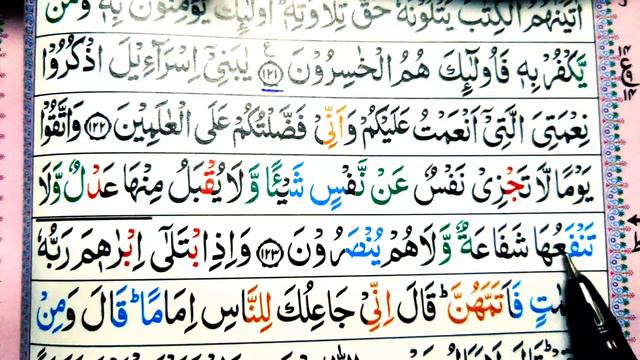 اٰتَيْنٰهُمُ الْكِتٰبَ يَتْلُوْنَهٗ حَقَّ تِلَاوَتِهٖ اُولٰٓئِكَ يُؤْمِنُوْنَ بِهٖ وَمَنْ
يَّكْفُرْ بِهٖ فَاُولٰٓئِكَ هُمُ الْخٰسِرُوْنَ ۝١٢١ يٰبَنِيْٓ اِسْرَآءِيْلَ اذْكُرُوْا
نِعْمَتِيَ الَّتِيْٓ اَنْعَمْتُ عَلَيْكُمْ وَاَنِّيْ فَضَّلْتُكُمْ عَلَى الْعٰلَمِيْنَ ۝١٢٢ وَاتَّقُوْا
يَوْمًا لَّا تَجْزِيْ نَفْسٌ عَنْ نَّفْسٍ شَيْئًا وَّلَا يُقْبَلُ مِنْهَا عَدْلٌ وَّلَا
تَنْفَعُهَا شَفَاعَةٌ وَّلَا هُمْ يُنْصَرُوْنَ ۝١٢٣ وَاِذِ ابْتَلٰٓى اِبْرٰهٖمَ رَبُّهٗ
فَاَتَمَّهُنَّ ؕ قَالَ اِنِّيْ جَاعِلُكَ لِلنَّاسِ اِمَامًا ؕ قَالَ وَمِنْ